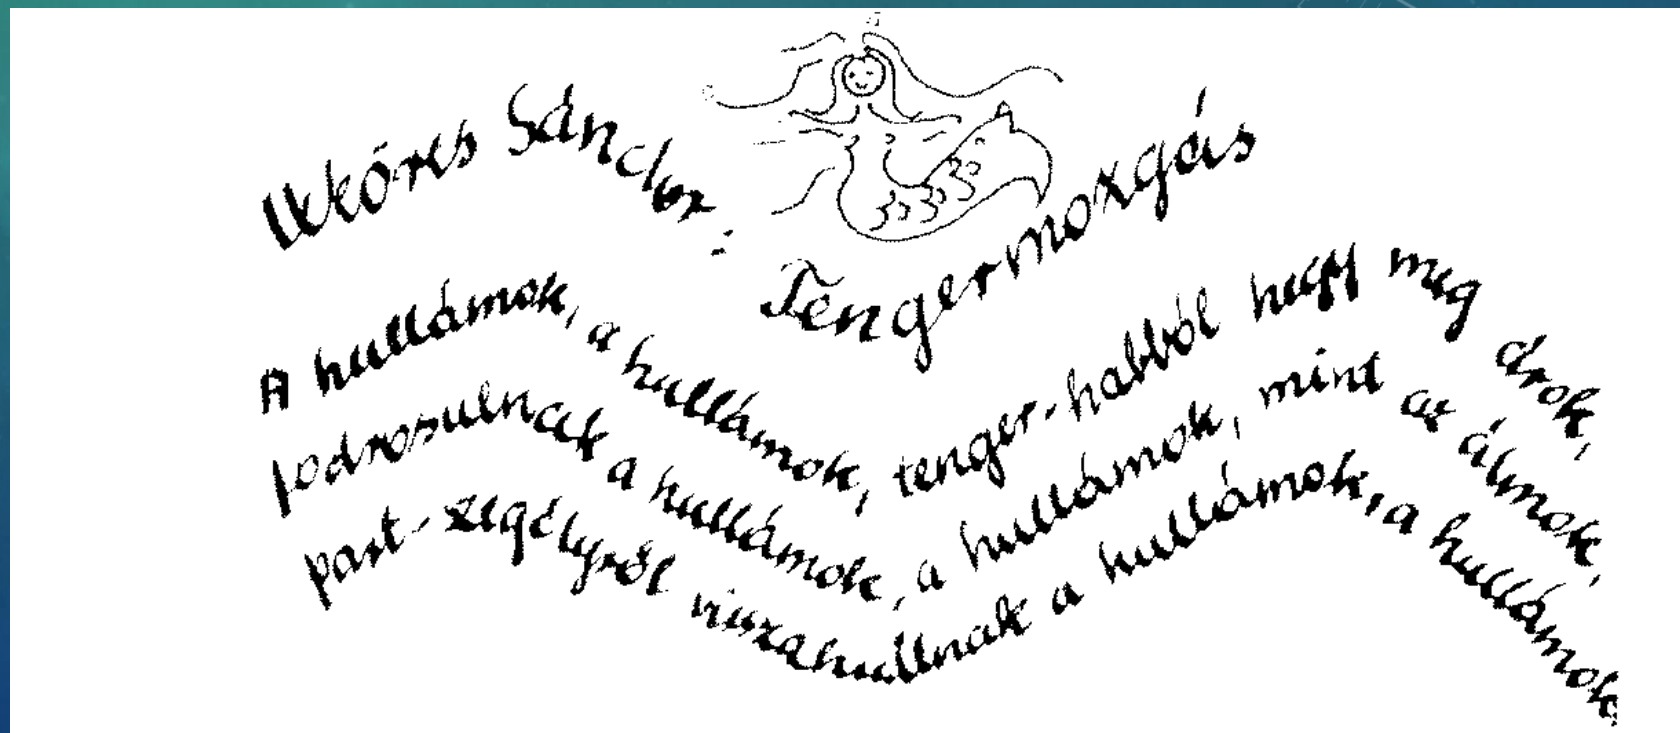 Weöres Sándor: Tengermozgás
A hullámok, a hullámok, tenger-habból hegy meg árok,
fodrosulnak a hullámok, a hullámok, mint az álmok,
part-szegélyről visszahullnak a hullámok, a hullámok